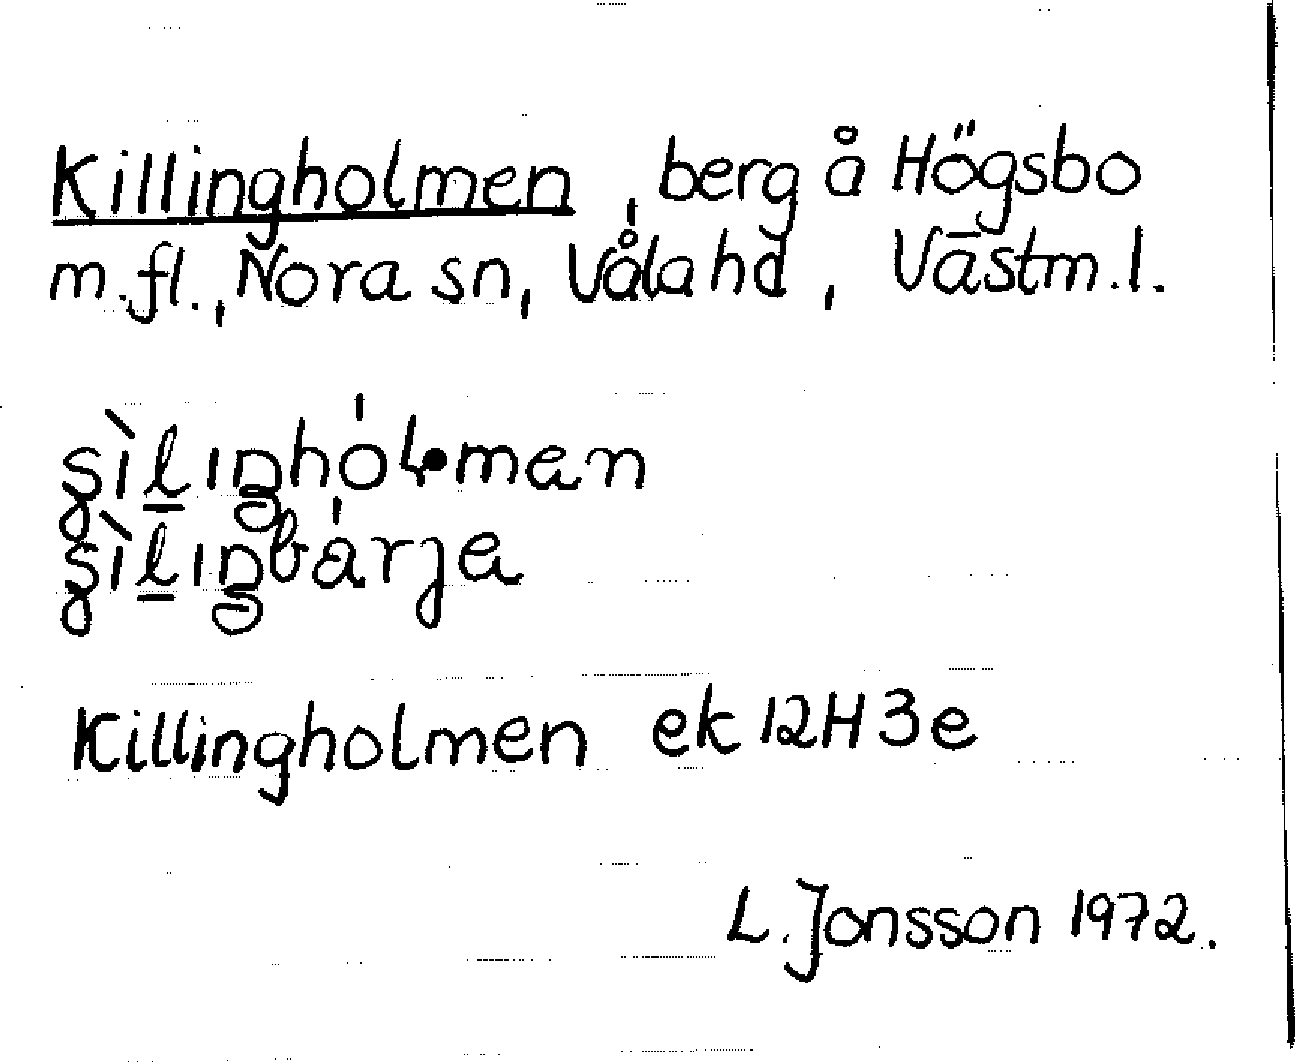 Killingholmen, berg å Högsbo
m.fl., Nora sn, Våla hd, Västm.l.
Killingholmen ek 12H3e
L. Jonsson 1972.